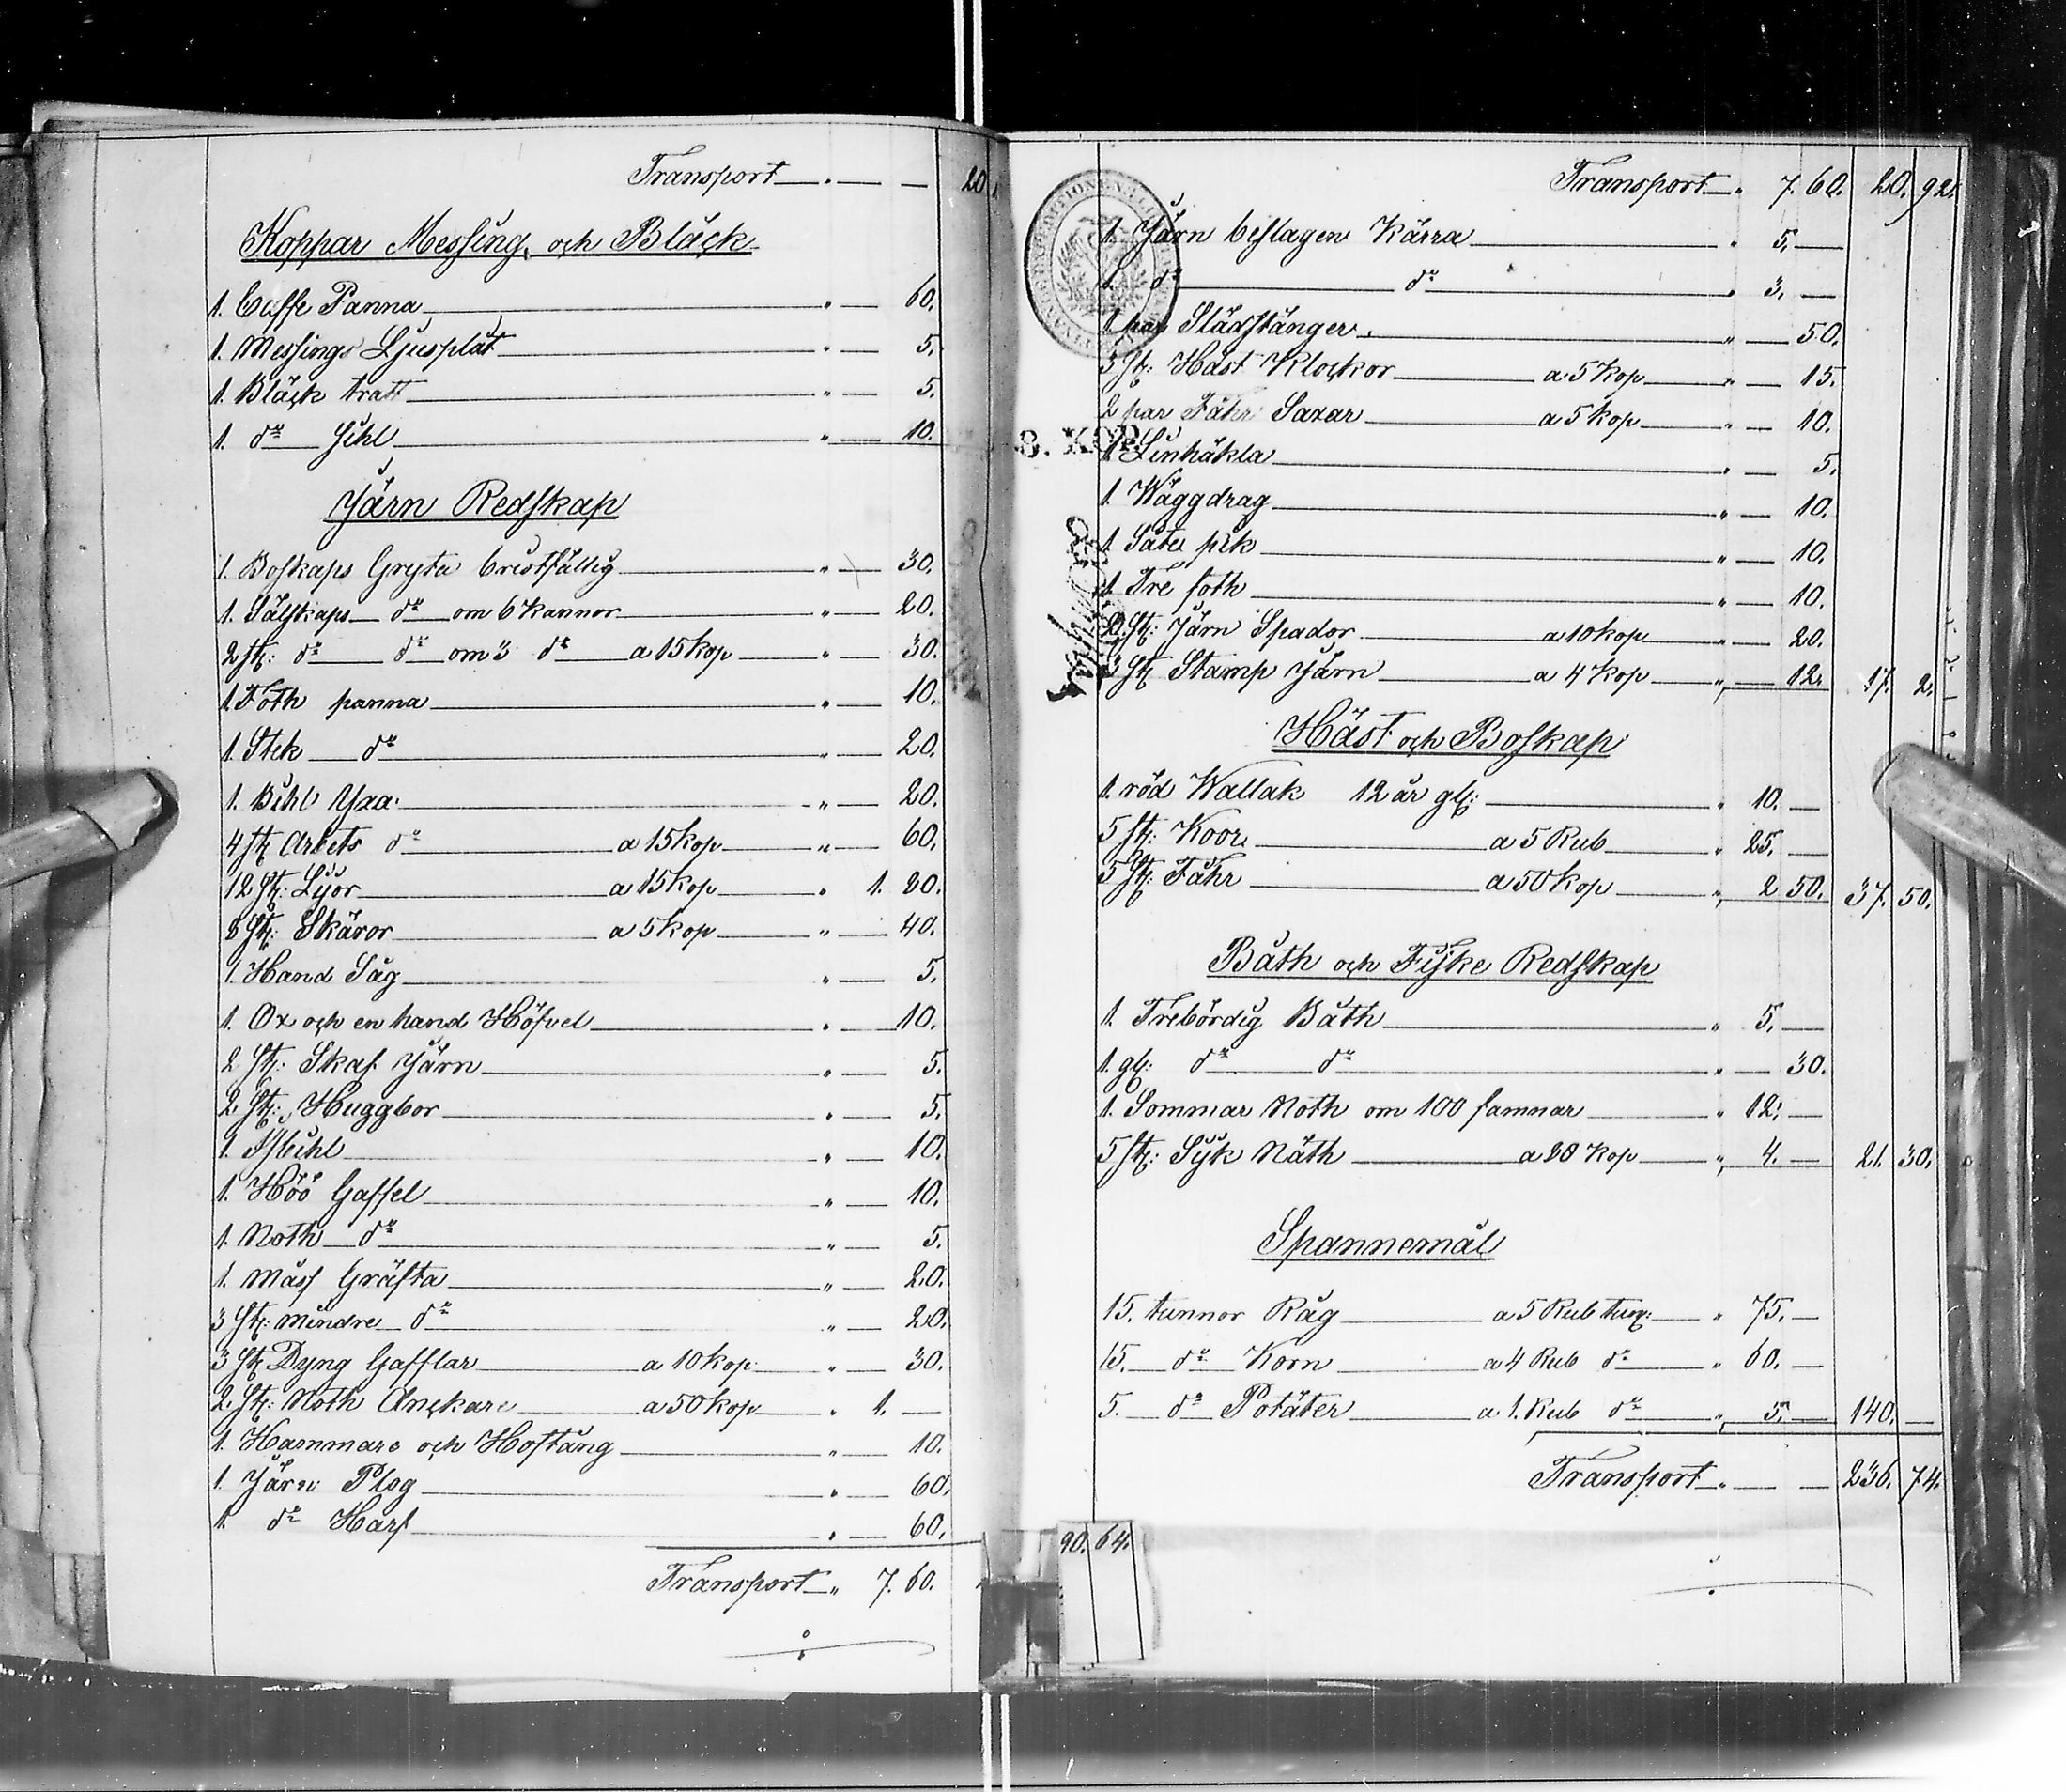 Transport — " — — 20
Koppar Messing, och Bläck
1. Caffe Panna " — 60.
1. Messings Ljusplåt " — 5.
1. Bläck tratt " — 5.
1. do " — 10.
Järn Redskap
1. Boskaps Gryta bristfällig " — 30.
1. Sälskaps do om 6 kannor " — 20.
2 st: do do om 3 do a 15 kop " — 30.
1. Foth panna " — 10.
1. Stek do " — 20.
1. Bihl Yxa " — 20.
4 st Arbets do a 15 kop " — 60.
12 st: Lijor a 15 kop " 1. 80.
8 st: Skäror a 5 kop " — 40.
1. Hand Såg " — 5.
1. Ox och en hand Höfvel " — 10.
2 st: Skaf Järn " — 5.
2. st: Huggbor " — 5.
1. " — 10.
1. Höö Gaffel " — 10.
1. Noth do " — 5.
1. Gräfta " — 20.
3 st: mindre do " — 20.
3 st Dyng Gafflar a 10 kop " — 30.
2. st: Noth Anckare a 50 kop " 1. —
1. Hammare och Hoftång " — 10.
1 Järn Plog " — 60.
1. do Harf " — 60.
Transport " 7. 60.
Transport " 7. 60. 20. 92.
1. Järn beslagen Kärra " 5. —
1. do do " 3. —
1 par Slädstänger " — 50.
3 st: Häst Klockor a 5 kop " — 15.
2 par Fåhr Saxar a 5 kop " — 10.
8. KOP.
1 Linhäkla " — 5.
1. Wäggdrag " — 10.
1 " — 10.
1 Tre foth " — 10.
2. st: Järn Spador a 10 kop " — 20.
3 st Stamp Järn a 4 kop " — 12. 17. 2.
Häst och Boskap
1. röd Wallak 12 år gl: " 10. —
5 st: Koor a 5 Rub " 25. —
5 st: Fåhr a 50 kop " 2 50. 37. 50.
Båth och Fiske Redskap
1. Trebördig Båth " 5. —
1. gl: do do " — 30.
1. Sommar Noth om 100 famnar " 12. —
5 st: Sijk Näth a 80 kop " 4. — 21. 30.
Spannemål
15. tunnor Råg a 5 Rub tun: " 75. —
15. do Korn a 4 Rub do " 60. —
5. do Potäter a 1. Rub do " 5. — 140. —
Transport " — — 236. 74.
90. 64.